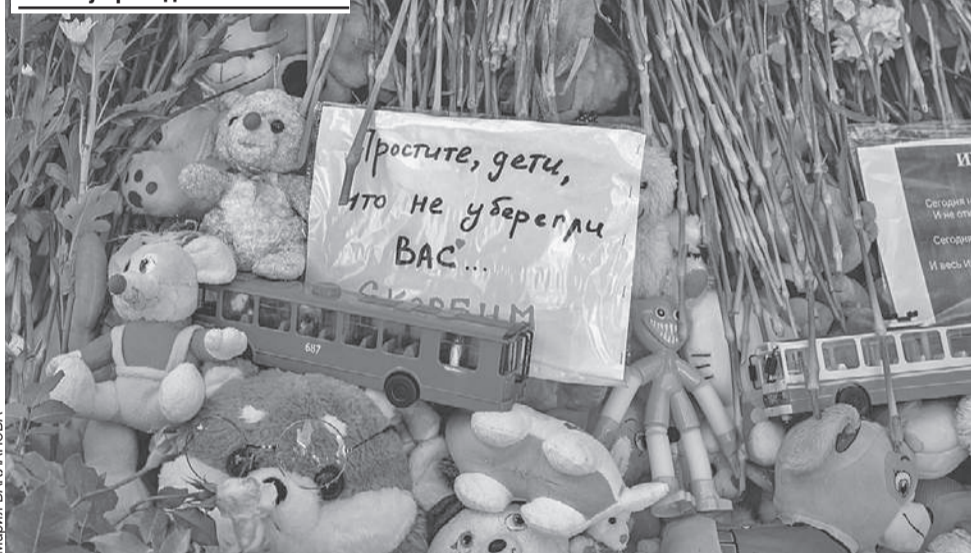 Простите, дети,
что не уберегли
ВАС...
СКОРБИМ
687
Сегодня
И не от
Сегодня
И весь И